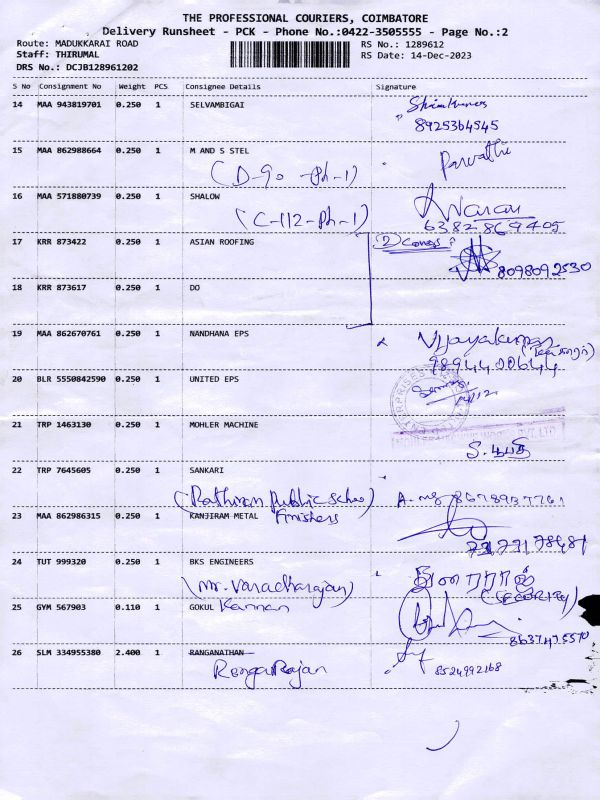 THE PROFESSIONAL COURIERS, COIMBATORE
Delivery Runsheet - PCK - Phone No.:0422-3505555 - Page No.:2
Route: MADUKKARAI ROAD RS No.: 1289612
Staff: THIRUMAL RS Date: 14-Dec-2023
DRS No.: DCJB128961202
S No Consignment No Weight PCS Consignee Details Signature
14 MAA 943819701 0.250 1 SELVAMBIGAI
8925364545
15 MAA 862988664 0.250 1 M AND S STEL Parvathi
(D-90-Ph-1)
16 MAA 571880739 0.250 1 SHALOW
(C-112-Ph-1) 6382869405
17 KRR 873422 0.250 1 ASIAN ROOFING
8098092530
18 KRR 873617 0.250 1 DO
19 MAA 862670761 0.250 1 NANDHANA EPS Vijayakumar
9894420644
20 BLR 5550842590 0.250 1 UNITED EPS
21 TRP 1463130 0.250 1 MOHLER MACHINE
22 TRP 7645605 0.250 1 SANKARI
(Rathinam Public School)
23 MAA 862986315 0.250 1 KANJIRAM METAL Finishers
24 TUT 999320 0.250 1 BKS ENGINEERS
(Mr. Varadharajan) (SECURITY)
25 GYM 567903 0.110 1 GOKUL Kannan
8637475570
26 SLM 334955380 2.400 1 RANGANATHAN
RangaRajan 8524992168